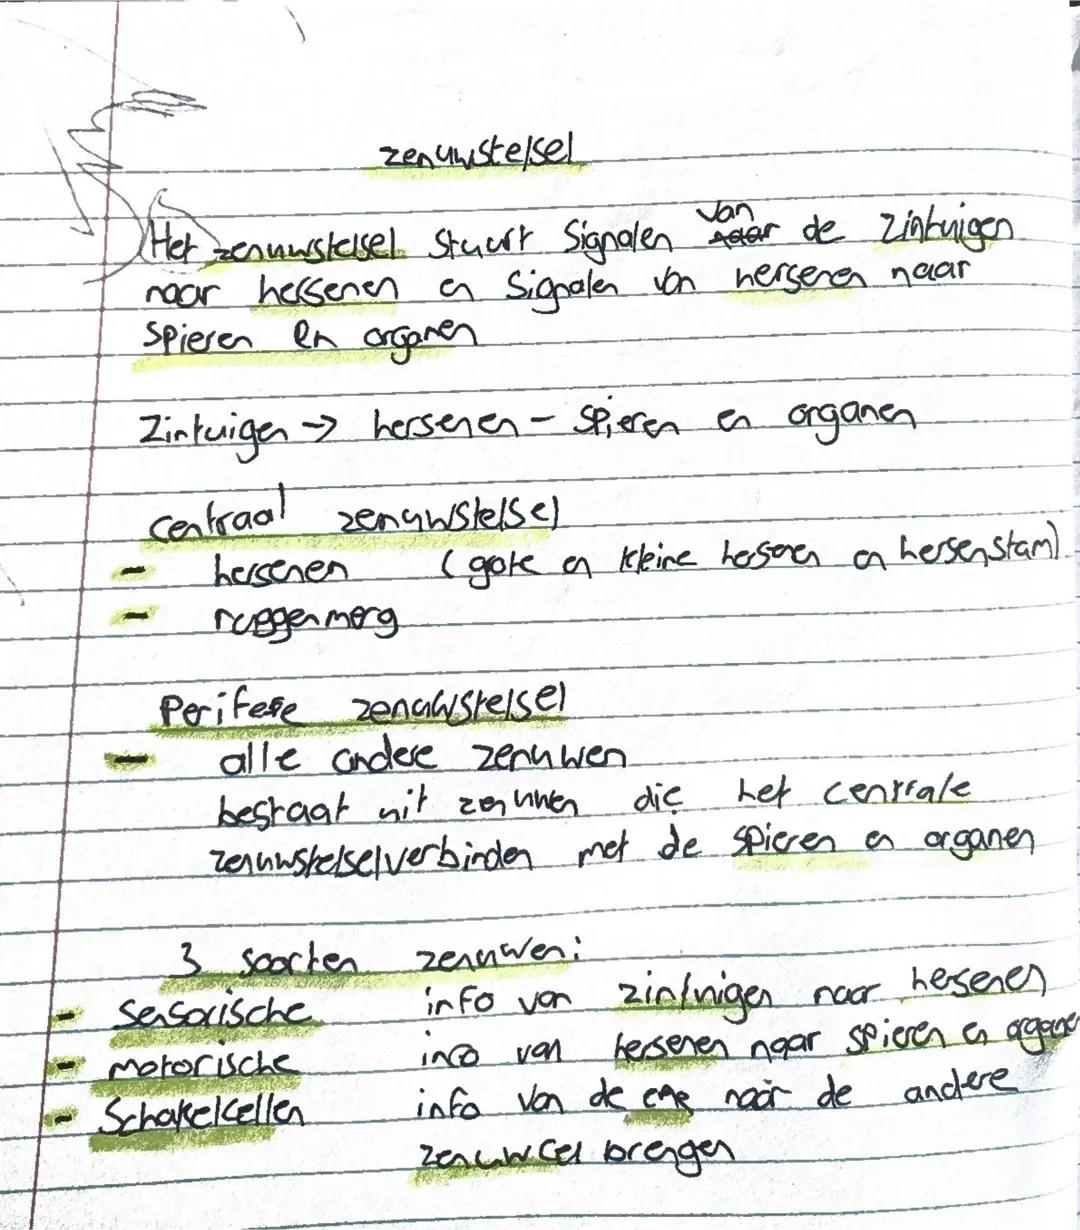 zenuwstelsel
Het zenuwstelsel stuurt signalen van de zintuigen
naar hersenen en signalen van hersenen naar
spieren en organen
Zintuigen → hersenen - spieren en organen
Centraal zenuwstelsel
- hersenen (grote en kleine hersenen en hersenstam)
- ruggenmerg
Perifere zenuwstelsel
- alle andere zenuwen
bestaat uit zenuwen die het centrale
zenuwstelsel verbinden met de spieren en organen
3 soorten zenuwen:
- Sensorische info van zintuigen naar hersenen
- motorische info van hersenen naar spieren en organen
- Schakelcellen info van de ene naar de andere
zenuwcel brengen